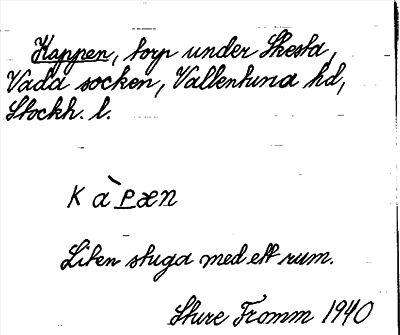 Kappen, torp under Skesta,
Vada socken, Vallentuna hd,
Stockh. l.
K à p æ n
Liten stuga med ett rum.
Sture Fromm 1940